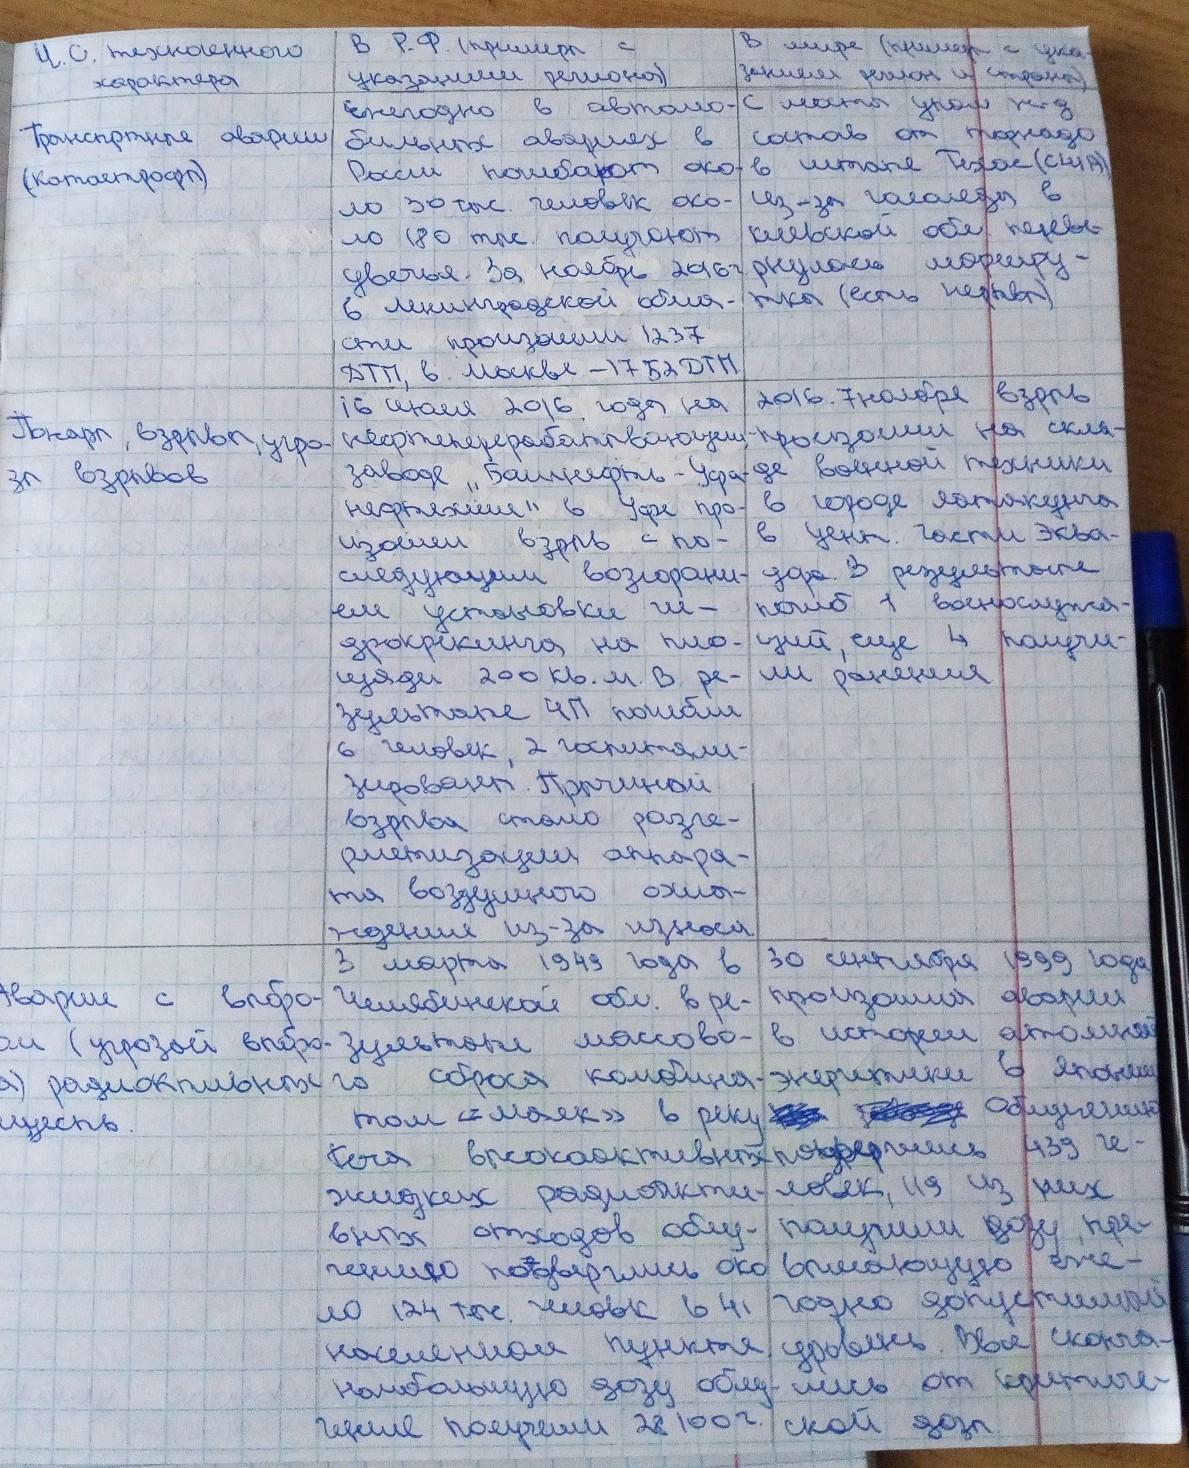 Ч.С. техногенного
характера
В Р.Ф. (пример с
указанием региона)
В мире (пример с ука-
занием регион и страны)
Транспртные аварии
(катастрофы)
Ежегодно в автомо-
бильных авариях в
России погибают око-
ло 30 тыс. человек око-
ло 180 тыс. получают
увечья. За ноябрь 2016г
в ленинградской обла-
сти произошли 1237
ДТП, в Москве – 1752 ДТП
С моста упал ж-д
состав от торнадо
в штате Техас (США)
Из-за гололеда в
киевской обл. перевё-
рнулась маршру-
тка (есть жертвы)
Пожары, взрывы, угро-
зы взрывов
16 июля 2016 года на
нефтеперерабатывающем
заводе „Башнефть - Уфа-
нефтехим" в Уфе про-
изошел взрыв с по-
следующим возгорани-
ем установки ги-
дрокрекинга на пло-
щади 200 кв. м. В ре-
зультате ЧП погибли
6 человек, 2 госпитали-
зированы. Причиной
взрыва стало разге-
рметизации аппара-
та воздушного охла-
ждения из-за износа
2016. 7 ноября взрыв
произошли на скла-
де военной техники
в городе латакунга
в цент. части Эква-
дора. В результате
погиб 1 военнослужа-
щий, еще 4 получи-
ли ранения
Аварии с выбро-
ом (угрозой выбро-
а) радиоктивных
еществ.
3 марта 1949 года в
Челябинской обл. в ре-
зультате массово-
го сброса комбина-
том «Маяк» в реку
Теча высокоактивных
жидких радиоакти-
вных отходов облу-
чению подверглись око
ло 124 тыс. человк в 41
населенном пункте,
наибольшую дозу облу-
чение получили 28 100 г.
30 сентября 1999 года
произошла авария
в истории атомной
энергетики в Японии
Облучению
подверглись 439 че-
ловек, 119 из них
получили дозу, пре-
вышающую еже-
годно допустимый
уровень. Двое сконча-
лись от критиче-
ской дозы